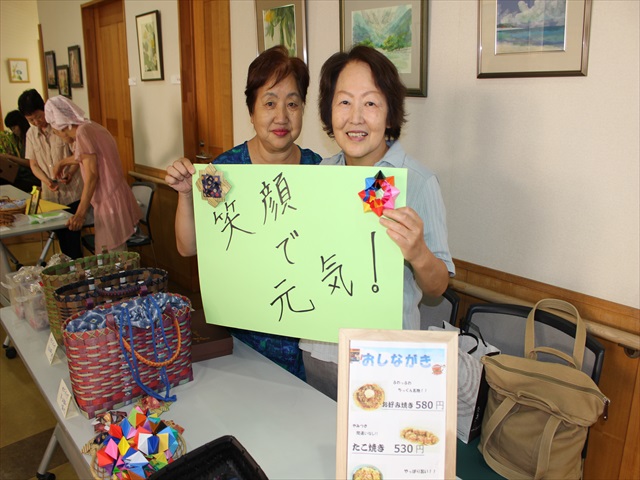 笑顔
で
元気!
おしながき
お好み焼き 580円
たこ焼き 530円